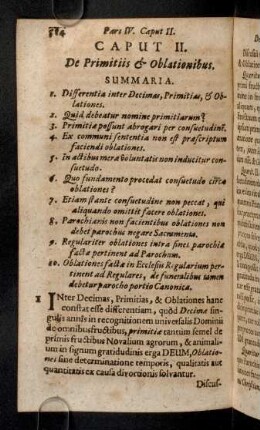 584 Pars IV. Caput II.
CAPUT II.
De Primitiis & Oblationibus.
SUMMARIA.
1. Differentia inter Decimas, Primitias, & Ob-
lationes.
2. Quid debeatur nomine primitiarum?
3. Primitiæ possunt abrogari per consuetudinē.
4. Ex communi sententia non est præscriptum
faciendi oblationes.
5. In actibus meræ voluntatis non inducitur con-
suetudo.
6. Quo fundamento procedat consuetudo circa
oblationes?
7. Etiam stante consuetudine non peccat, qui
aliquando omittit facere oblationes.
8. Parochianis non facientibus oblationes non
debet parochus negare Sacramenta.
9. Regulariter oblationes intra fines parochiæ
factæ pertinent ad Parochum.
10. Oblationes factæ in Ecclesiis Regularium per-
tinent ad Regulares, de funeralibus tamen
debetur parocho portio Canonica.
1 INter Decimas, Primitias, & Oblationes hanc
constat esse differentiam, quòd Decimæ sin-
gulis annis in recognitionem universalis Dominii
de omnibus fructibus, primitiæ tantum semel de
primis fructibus Novalium agrorum, & animali-
um in signum gratitudinis erga DEUM, Oblatio-
nes sine determinatione temporis, qualitatis aut
quantitatis ex causa divortionis solvantur.
Discuf-